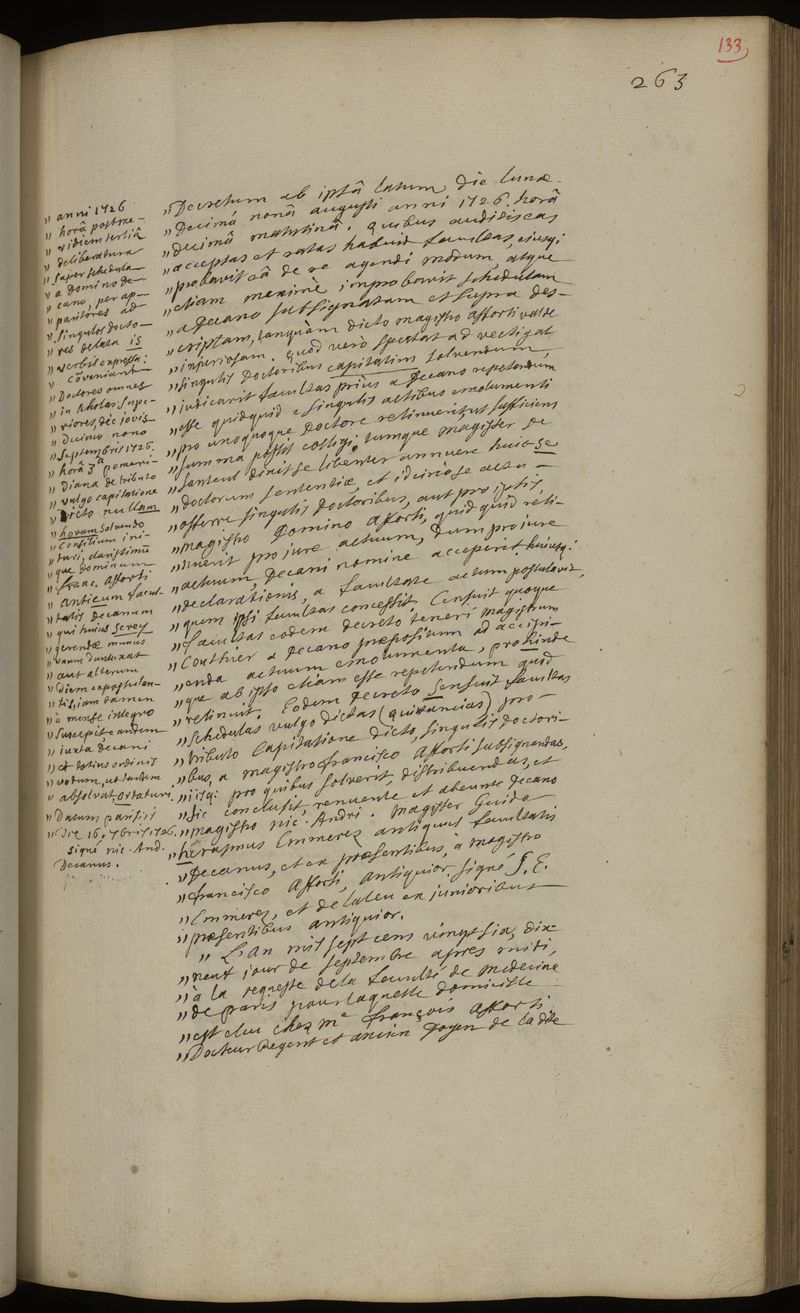 133
263
" anni 1726
" horâ postme-
" ridiem tertiâ
" deliberatura
" super schedula
" a domino de-
" cano, per ap-
" paritores ad
" singulos docto-
" res delata is
" verbis expressa:
" Conveniant
" Doctores omnes
" in scholas supe-
" riores, die jovis
" Decimo nono
" septembris 1726.
" horâ 3a pomeri-
" diana de tributo
" vulgo capitatione
" dicto nullam
" horam solvendo
" Consilium ini-
" turi, clarissimu
" que dominum
" franc. afforti
" anticum facul-
" tatis Decanum
" qui huius
" gerendæ munus
" unum duntaxat
" aut alterum
" diem expostulan-
" tis, iam tamen
" a mense integro
" suscepit, eandem
" iuxta decani
" et totius ordinis
" votum, ut tandem
" absolvat, ortaturi.
" Datum parisiis
" Die 16. 7bris 1726.
signé nic. And.
Decanus.
" Decretum ab ipsâ latum die lunæ
" Decimâ nonâ augusti anni 1726. horâ
" decimâ matutinâ. quibus auditis eas
" acceptas et ratas habuit facultas, ejusq;
" probavit eâ de re agendi modum, atque
" etiam maximè improbavit schedulam
" a Decano subsignatam et supra des-
" criptam, tanquàm dicto magistro afforti valde
" injuriosam. quod verò spectat ad vectigal
" singulis Doctoribus capitatim solvendum
" judicavit facultas prius a Decano repetendum
" esse quidquid e singulis actibus emolumenti
" pro unoquoque Doctore retinuerit, ut sufficiens
" summa possit colligi; tumque magister De
" santeul dixit se libenter annuere huic se
" doctorum sententiæ, et idcirco se
" offerre singulis doctoribus, aut pro ipsis,
" magistro Domino afforti, quidquid reti-
" nuerit pro jure actuum, dum pro jure
" actuum, Decani nomine acceperit huiusq;
" declarationis, a facultate actum postulavit,
" quem ipsi facultas concessit. Censuit quoque
" facultas eodem decreto teneri magistrum
" Couthier a Decano præpositum ad accipi-
" enda actuum emolumenta, proRinde
" que ab ipso etiam esse repetendum quid
" retinuit. Eodem Decreto sensuit facultas
" schedulas vulgo dictas (quittancias) pro
" tributo Capitatione dicto, singulis doctori-
" bus, a magistro francisco afforti subsignandas,
" iisq: pro quibus solverit, distribuendas, et
" sic conclusit, renuente et abeunte Decano
" magistro Nic. Andri. Magister Guido
" herasmus Emmerez antiquus facultatis
" Decanus, et ex præsentibus, à magistro
" francisco Afforti, antiquior. signé G. E.
" Emmerez, et de laleu ex junioribus
" præsentibus antiquior.
" L'an mil sept cens vingt six, dix
" neuf jour de septembre apres midi,
" à la requeste de la faculté de medecine
" de paris pour laquelle domicille
" est elu chez Me françois afforti
" Docteur Regent et ancien Doyen de la dite